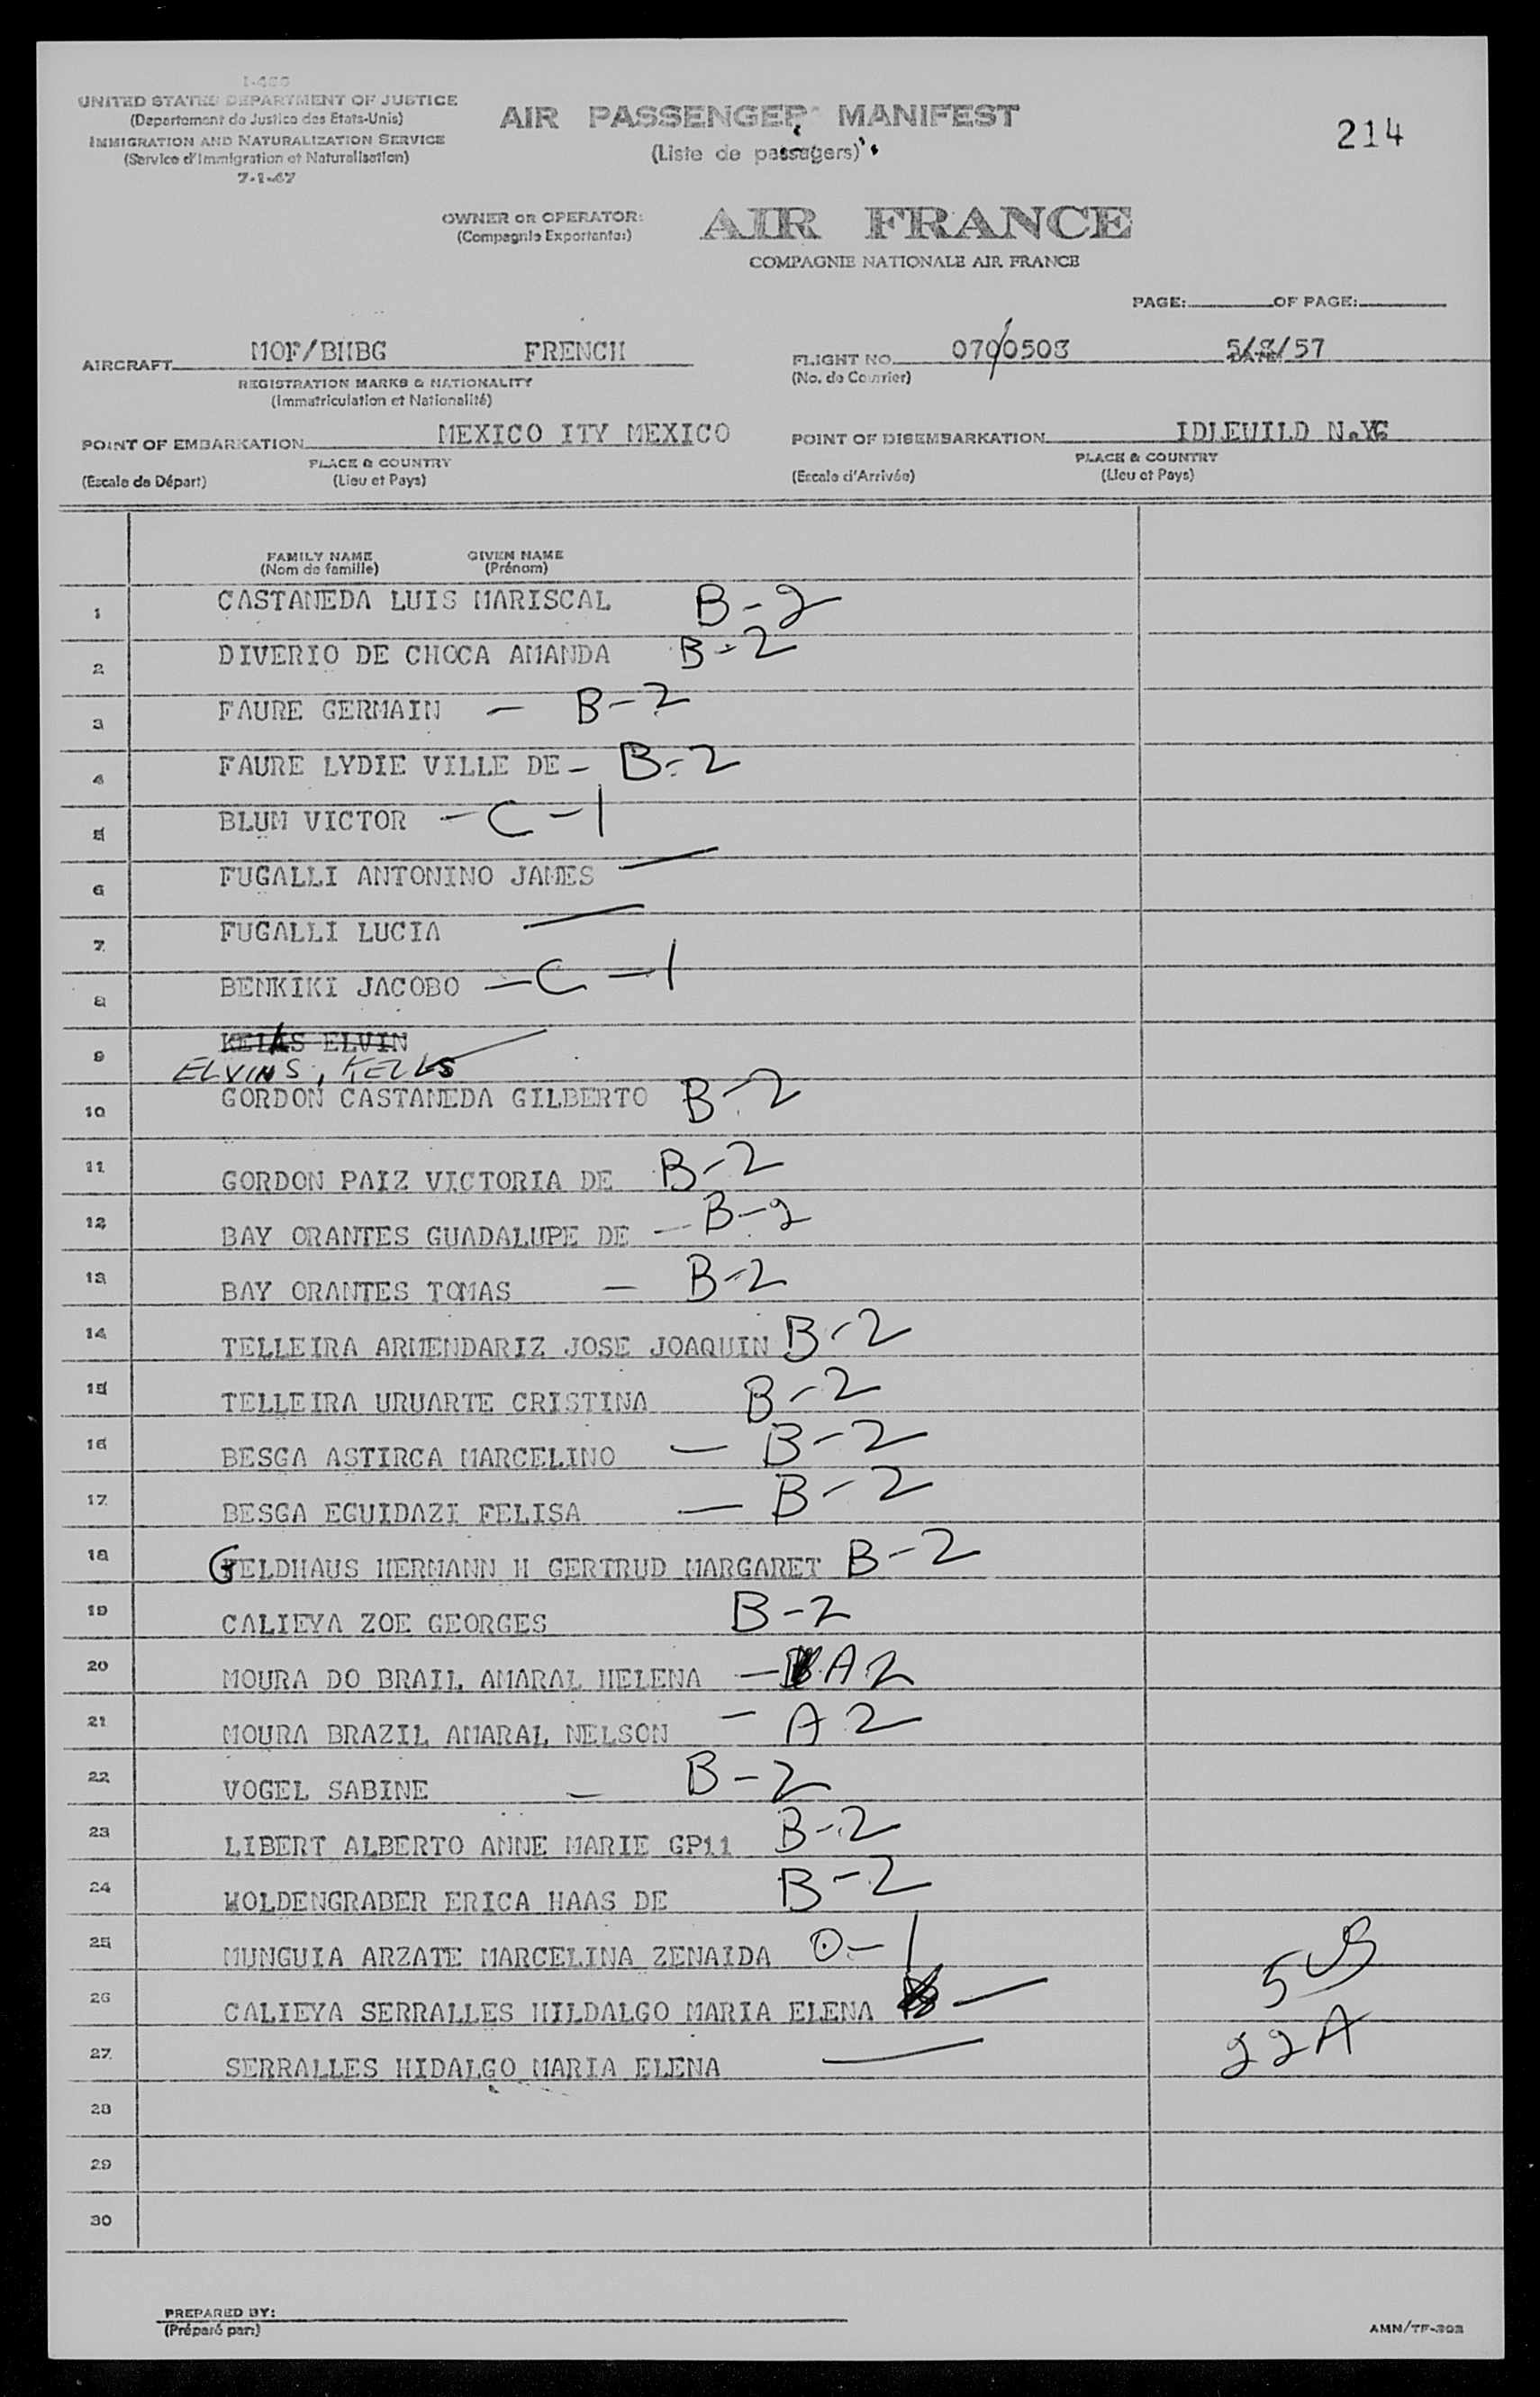 I-466
UNITED STATES DEPARTMENT OF JUSTICE
(Departement de Justice des Etats-Unis)
IMMIGRATION AND NATURALIZATION SERVICE
(Service d'Immigration et Naturalisation)
7-1-47
AIR PASSENGER MANIFEST
(Liste de passagers)
214
OWNER OR OPERATOR:
(Compagnie Exportante:)
AIR FRANCE
COMPAGNIE NATIONALE AIR FRANCE
PAGE: OF PAGE:
AIRCRAFT MOF/BHBG FRENCH
REGISTRATION MARKS & NATIONALITY
(Immatriculation et Nationalité)
FLIGHT NO. 0700503 5/8/57
(No. de Courrier)
POINT OF EMBARKATION MEXICO ITY MEXICO
PLACE & COUNTRY
(Escale de Départ) (Lieu et Pays)
POINT OF DISEMBARKATION IDLEWILD N.Y
PLACE & COUNTRY
(Escale d'Arrivée) (Lieu et Pays)
FAMILY NAME GIVEN NAME
(Nom de famille) (Prénom)
1 CASTANEDA LUIS MARISCAL B-2
2 DIVERIO DE CHOCA AMANDA B-2
3 FAURE GERMAIN - B-2
4 FAURE LYDIE VILLE DE - B-2
5 BLUM VICTOR - C-1
6 FUGALLI ANTONINO JAMES
7 FUGALLI LUCIA
8 BENKIKI JACOBO - C-1
9 KELLS ELVIN
ELVINS, KELLS
10 GORDON CASTANEDA GILBERTO B-2
11 GORDON PAIZ VICTORIA DE B-2
12 BAY ORANTES GUADALUPE DE - B-2
13 BAY ORANTES TOMAS - B-2
14 TELLEIRA ARMENDARIZ JOSE JOAQUIN B-2
15 TELLEIRA URUARTE CRISTINA B-2
16 BESGA ASTIRCA MARCELINO - B-2
17 BESGA EGUIDAZI FELISA - B-2
18 GELDHAUS HERMANN H GERTRUD MARGARET B-2
19 CALIEYA ZOE GEORGES B-2
20 MOURA DO BRAIL AMARAL HELENA - A 2
21 MOURA BRAZIL AMARAL NELSON - A 2
22 VOGEL SABINE - B-2
23 LIBERT ALBERTO ANNE MARIE GP11 B-2
24 WOLDENGRABER ERICA HAAS DE B-2
25 MUNGUIA ARZATE MARCELINA ZENAIDA O-1
26 CALIEYA SERRALLES HILDALGO MARIA ELENA - 5 US
27 SERRALLES HIDALGO MARIA ELENA 22A
28
29
30
PREPARED BY:
(Préparé par:)
AMN/TF-302